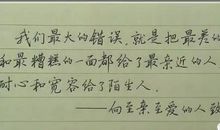 我们最大的错误,就是把最差的
和最糟糕的一面都给了最亲近的人
耐心和宽容给了陌生人.
——向至亲至爱的人致